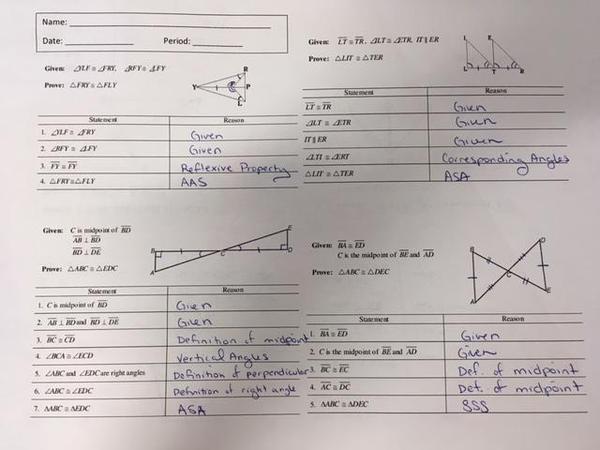 Name:
Date: Period:
Given: ∠YLF ≅ ∠FRY, ∠RFY ≅ ∠LFY
Prove: △FRY ≅ △FLY
R
Y
F
P
L
Statement Reason
1. ∠YLF ≅ ∠FRY Given
2. ∠RFY ≅ ∠LFY Given
3. FY ≅ FY Reflexive Property
4. △FRY ≅ △FLY AAS
Given: LT ≅ TR, ∠ILT ≅ ∠ETR, IT ∥ ER
Prove: △LIT ≅ △TER
I E
L T R
Statement Reason
LT ≅ TR Given
∠ILT ≅ ∠ETR Given
IT ∥ ER Given
∠LTI ≅ ∠ERT Corresponding Angles
△LIT ≅ △TER ASA
Given: C is midpoint of BD
AB ⊥ BD
BD ⊥ DE
Prove: △ABC ≅ △EDC
E
B C D
A
Statement Reason
1. C is midpoint of BD Given
2. AB ⊥ BD and BD ⊥ DE Given
3. BC ≅ CD Definition of midpoint
4. ∠BCA ≅ ∠ECD Vertical Angles
5. ∠ABC and ∠EDC are right angles Definition of perpendicular
6. ∠ABC ≅ ∠EDC Definition of right angle
7. △ABC ≅ △EDC ASA
Given: BA ≅ ED
C is the midpoint of BE and AD
Prove: △ABC ≅ △DEC
B D
C
A E
Statement Reason
1. BA ≅ ED Given
2. C is the midpoint of BE and AD Given
3. BC ≅ EC Def. of midpoint
4. AC ≅ DC Det. of midpoint
5. △ABC ≅ △DEC SSS